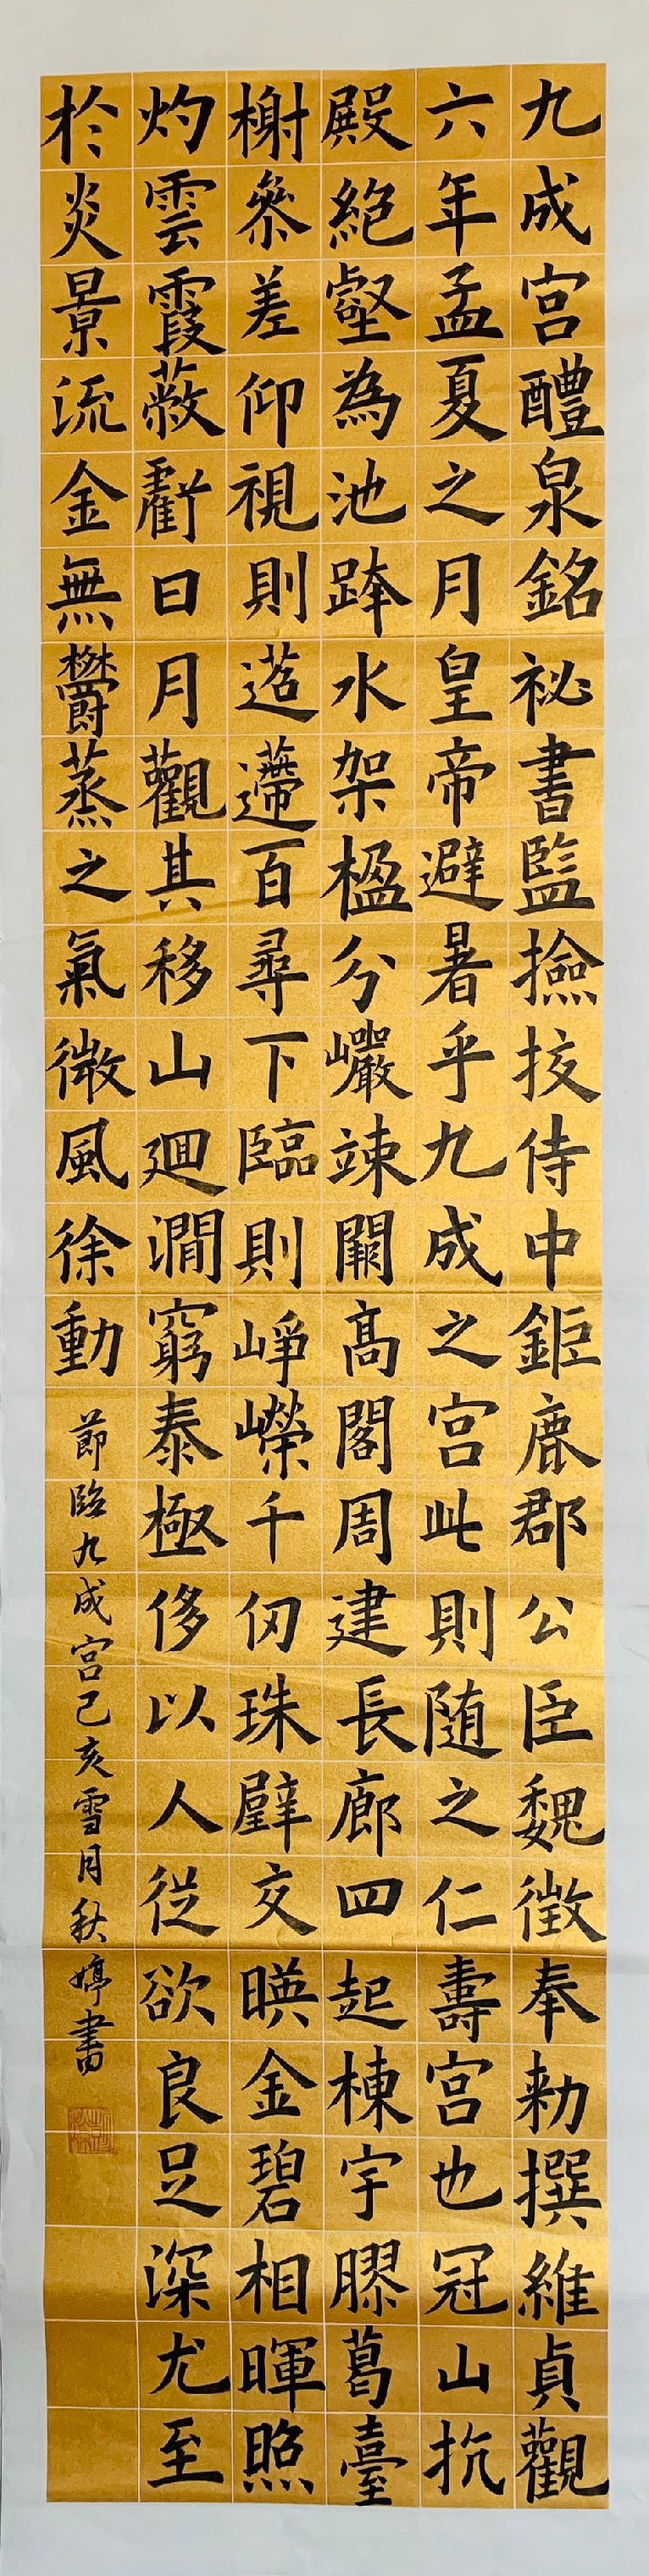 九成宫醴泉銘祕書監撿挍侍中鉅鹿郡公臣魏徵奉勑撰維貞觀
六年孟夏之月皇帝避暑乎九成之宫此則随之仁壽宫也冠山抗
殿絕壑為池跨水架楹分巖竦闕髙閣周建長廊四起棟宇膠葛臺
榭叅差仰視則迢遰百尋下臨則崢嶸千仞珠璧交暎金碧相暉照
灼雲霞蔽虧日月觀其移山廻澗窮泰極侈以人從欲良足深尤至
於炎景流金無鬱蒸之氣微風徐動
節臨九成宫己亥雪月秋婷書